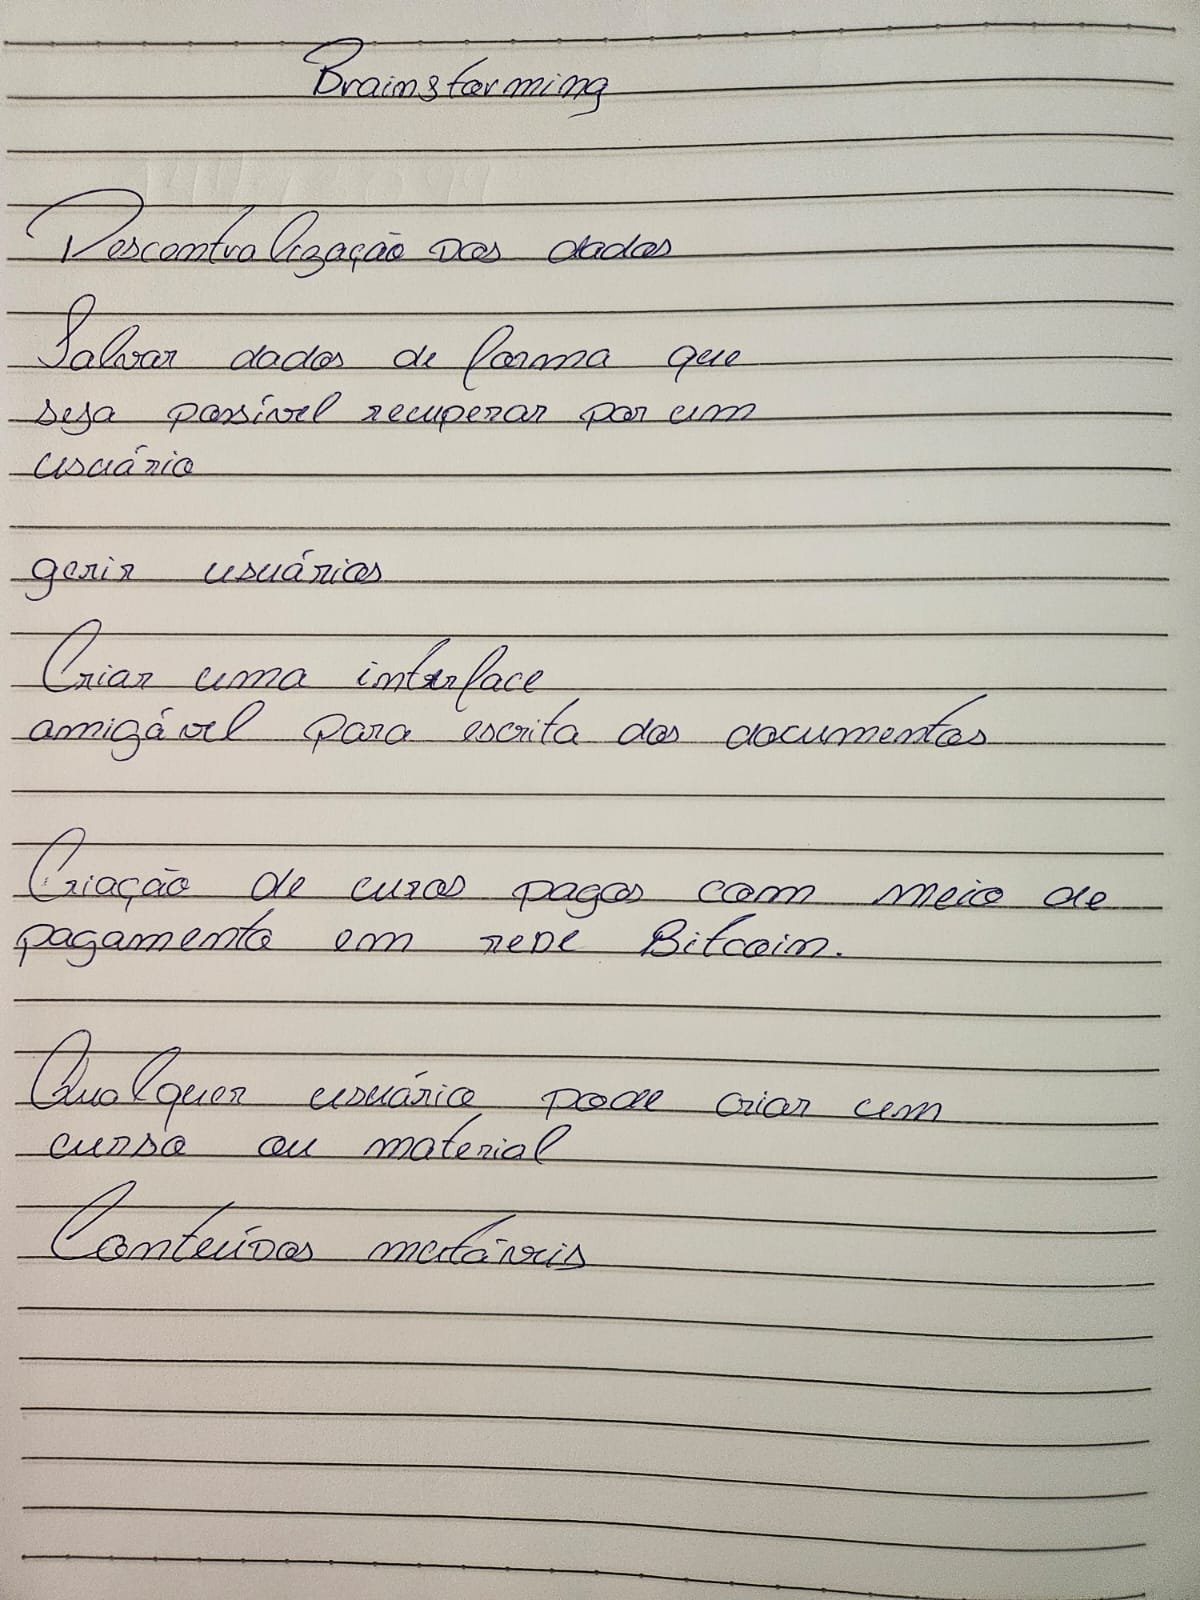 Brainstorming
Descentralização dos dados
Salvar dados de forma que
seja possível recuperar por um
usuário
gerir usuários
Criar uma interface
amigável para escrita dos documentos
Criação de curos pagos com meio de
pagamento em rede Bitcoin.
Qualquer usuário pode criar um
curso ou material
Conteúdos mutáveis